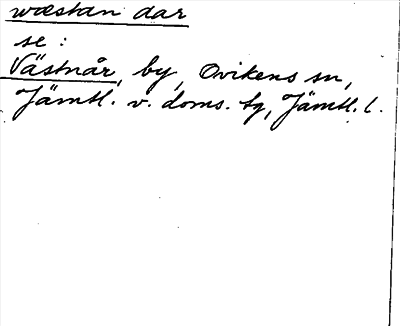 wæstan aar
se:
Västnår, by, Ovikens sn,
Jämtl. v. doms. tg, Jämtl. l.